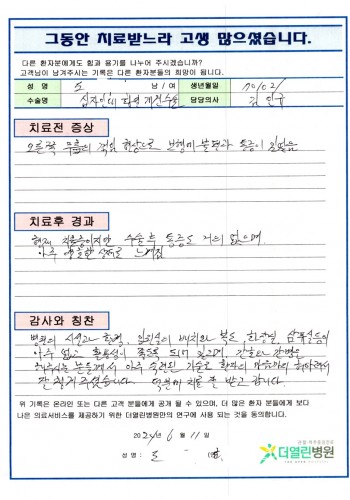 그동안 치료받느라 고생 많으셨습니다.
다른 환자분에게도 힘과 용기를 나누어 주시겠습니까?
고객님이 남겨주시는 기록은 다른 환자분들의 희망이 됩니다.
성 명 조 남 / 여 생년월일 70/02/
수술명 십자인대 파열 재건수술 담당의사 김 민규
치료전 증상
오른쪽 무릎의 꺾임 현상으로 보행이 불편과 통증이 있었음
치료후 경과
현재 치료중이지만 수술후 통증도 거의 없으며,
아주 양호한 상태로 느껴짐
감사와 칭찬
병원의 시설과 환경, 입원실의 배치와 복도, 화장실, 샤워실등이
아주 넓고 활용성이 좋도록 되어 있고, 간호와 간병을
해주시는 분들께서 아주 숙련된 기술로 환자의 마음까지 헤아려서
잘 챙겨주셨습니다. 덕분에 치료 잘 받고 갑니다.
위 기록은 온라인 또는 다른 고객 분들에게 공개 될 수 있으며, 더 많은 환자 분들에게 보다
나은 의료서비스를 제공하기 위한 더열린병원만의 연구에 사용 되는 것을 동의합니다.
2024년 6월 11일
성 명 : 조
더열린병원